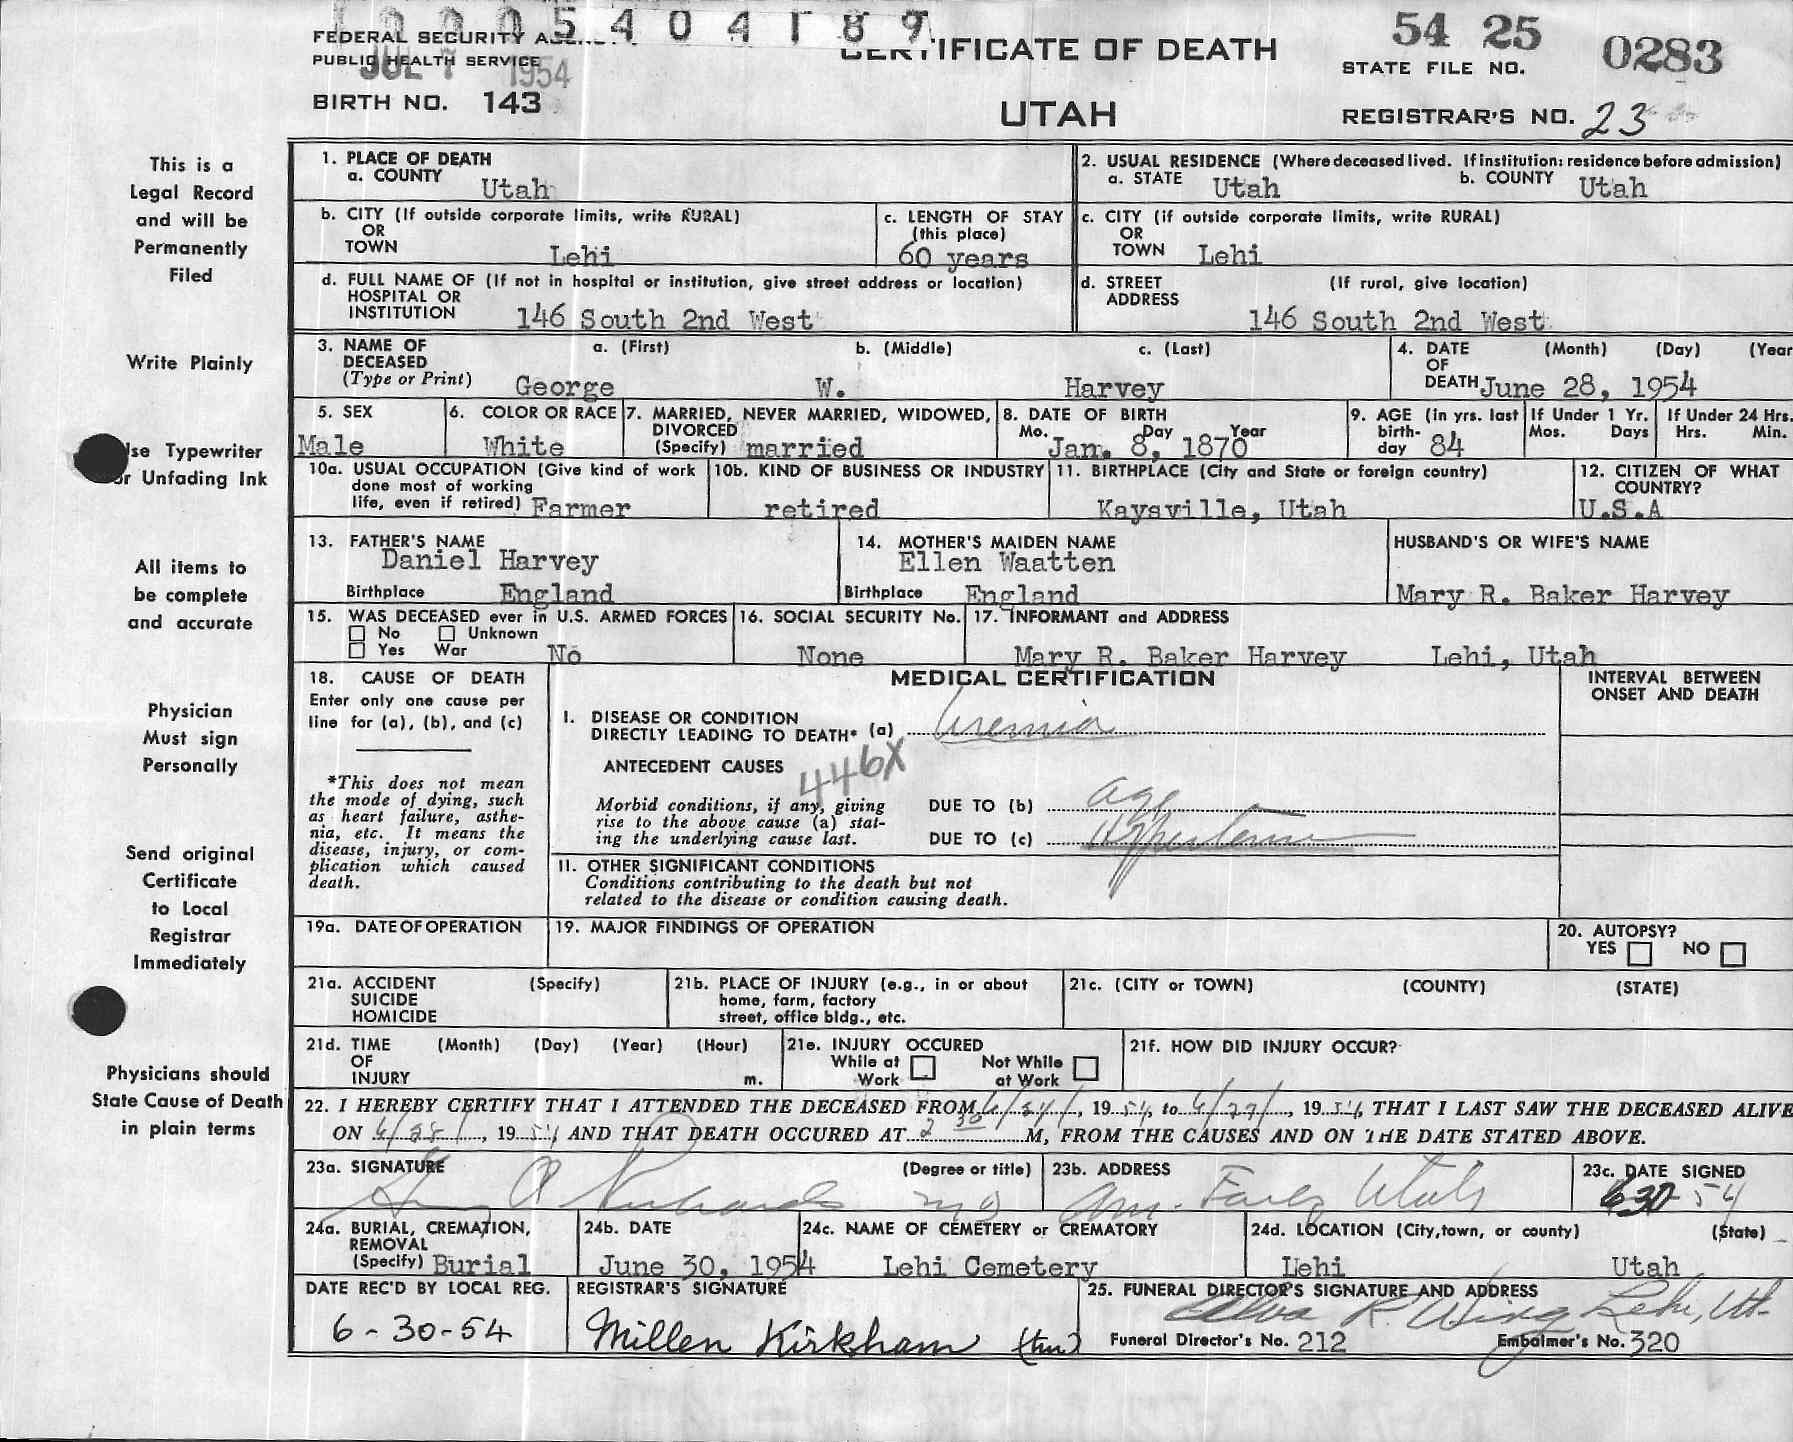 5 4 0 4 1 8 9
FEDERAL SECURITY
PUBLIC HEALTH SERVICE
JUL 7 1954
BIRTH NO. 143
CERTIFICATE OF DEATH
UTAH
54 25 0283
STATE FILE NO.
REGISTRAR'S NO. 23
This is a
Legal Record
and will be
Permanently
Filed
Write Plainly
se Typewriter
or Unfading Ink
All items to
be complete
and accurate
Physician
Must sign
Personally
Send original
Certificate
to Local
Registrar
Immediately
Physicians should
State Cause of Death
in plain terms
1. PLACE OF DEATH
a. COUNTY Utah
2. USUAL RESIDENCE (Where deceased lived. If institution: residence before admission)
a. STATE Utah b. COUNTY Utah
b. CITY (If outside corporate limits, write RURAL)
OR
TOWN Lehi
c. LENGTH OF STAY
(this place)
60 years
c. CITY (if outside corporate limits, write RURAL)
OR
TOWN Lehi
d. FULL NAME OF (If not in hospital or institution, give street address or location)
HOSPITAL OR
INSTITUTION 146 South 2nd West
d. STREET (If rural, give location)
ADDRESS
146 South 2nd West
3. NAME OF a. (First) b. (Middle) c. (Last)
DECEASED
(Type or Print) George W. Harvey
4. DATE (Month) (Day) (Year
OF
DEATH June 28, 1954
5. SEX
Male
6. COLOR OR RACE
White
7. MARRIED, NEVER MARRIED, WIDOWED,
DIVORCED
(Specify) married
8. DATE OF BIRTH
Mo. Day Year
Jan. 8, 1870
9. AGE (in yrs. last
birth-
day 84
If Under 1 Yr.
Mos. Days
If Under 24 Hrs.
Hrs. Min.
10a. USUAL OCCUPATION (Give kind of work
done most of working
life, even if retired) Farmer
10b. KIND OF BUSINESS OR INDUSTRY
retired
11. BIRTHPLACE (City and State or foreign country)
Kaysville, Utah
12. CITIZEN OF WHAT
COUNTRY?
U.S.A
13. FATHER'S NAME
Daniel Harvey
Birthplace England
14. MOTHER'S MAIDEN NAME
Ellen Waatten
Birthplace England
HUSBAND'S OR WIFE'S NAME
Mary R. Baker Harvey
15. WAS DECEASED ever in U.S. ARMED FORCES
No Unknown
Yes War No
16. SOCIAL SECURITY No.
None
17. INFORMANT and ADDRESS
Mary R. Baker Harvey Lehi, Utah
18. CAUSE OF DEATH
Enter only one cause per
line for (a), (b), and (c)
*This does not mean
the mode of dying, such
as heart failure, asthe-
nia, etc. It means the
disease, injury, or com-
plication which caused
death.
MEDICAL CERTIFICATION
INTERVAL BETWEEN
ONSET AND DEATH
I. DISEASE OR CONDITION
DIRECTLY LEADING TO DEATH* (a) Uremia
ANTECEDENT CAUSES
446X
Morbid conditions, if any, giving
rise to the above cause (a) stat-
ing the underlying cause last.
DUE TO (b) age
DUE TO (c) Hypertension
11. OTHER SIGNIFICANT CONDITIONS
Conditions contributing to the death but not
related to the disease or condition causing death.
19a. DATE OF OPERATION
19. MAJOR FINDINGS OF OPERATION
20. AUTOPSY?
YES NO
21a. ACCIDENT (Specify)
SUICIDE
HOMICIDE
21b. PLACE OF INJURY (e.g., in or about
home, farm, factory
street, office bldg., etc.
21c. (CITY or TOWN) (COUNTY) (STATE)
21d. TIME (Month) (Day) (Year) (Hour)
OF
INJURY m.
21e. INJURY OCCURED
While at Work
Not While at Work
21f. HOW DID INJURY OCCUR?
22. I HEREBY CERTIFY THAT I ATTENDED THE DECEASED FROM 6/24/, 1954, to 6/27/, 1954, THAT I LAST SAW THE DECEASED ALIVE
ON 6/28/, 1954 AND THAT DEATH OCCURED AT 2 30 M, FROM THE CAUSES AND ON THE DATE STATED ABOVE.
23a. SIGNATURE (Degree or title)
Richards MD
23b. ADDRESS
Am. Fork Utah
23c. DATE SIGNED
6 30 54
24a. BURIAL, CREMATION,
REMOVAL
(Specify) Burial
24b. DATE
June 30, 1954
24c. NAME OF CEMETERY or CREMATORY
Lehi Cemetery
24d. LOCATION (City, town, or county) (State)
Lehi Utah
DATE REC'D BY LOCAL REG.
6-30-54
REGISTRAR'S SIGNATURE
Millen Kirkham
25. FUNERAL DIRECTOR'S SIGNATURE AND ADDRESS
Alva R. Wing Lehi, Ut.
Funeral Director's No. 212 Embalmer's No. 320